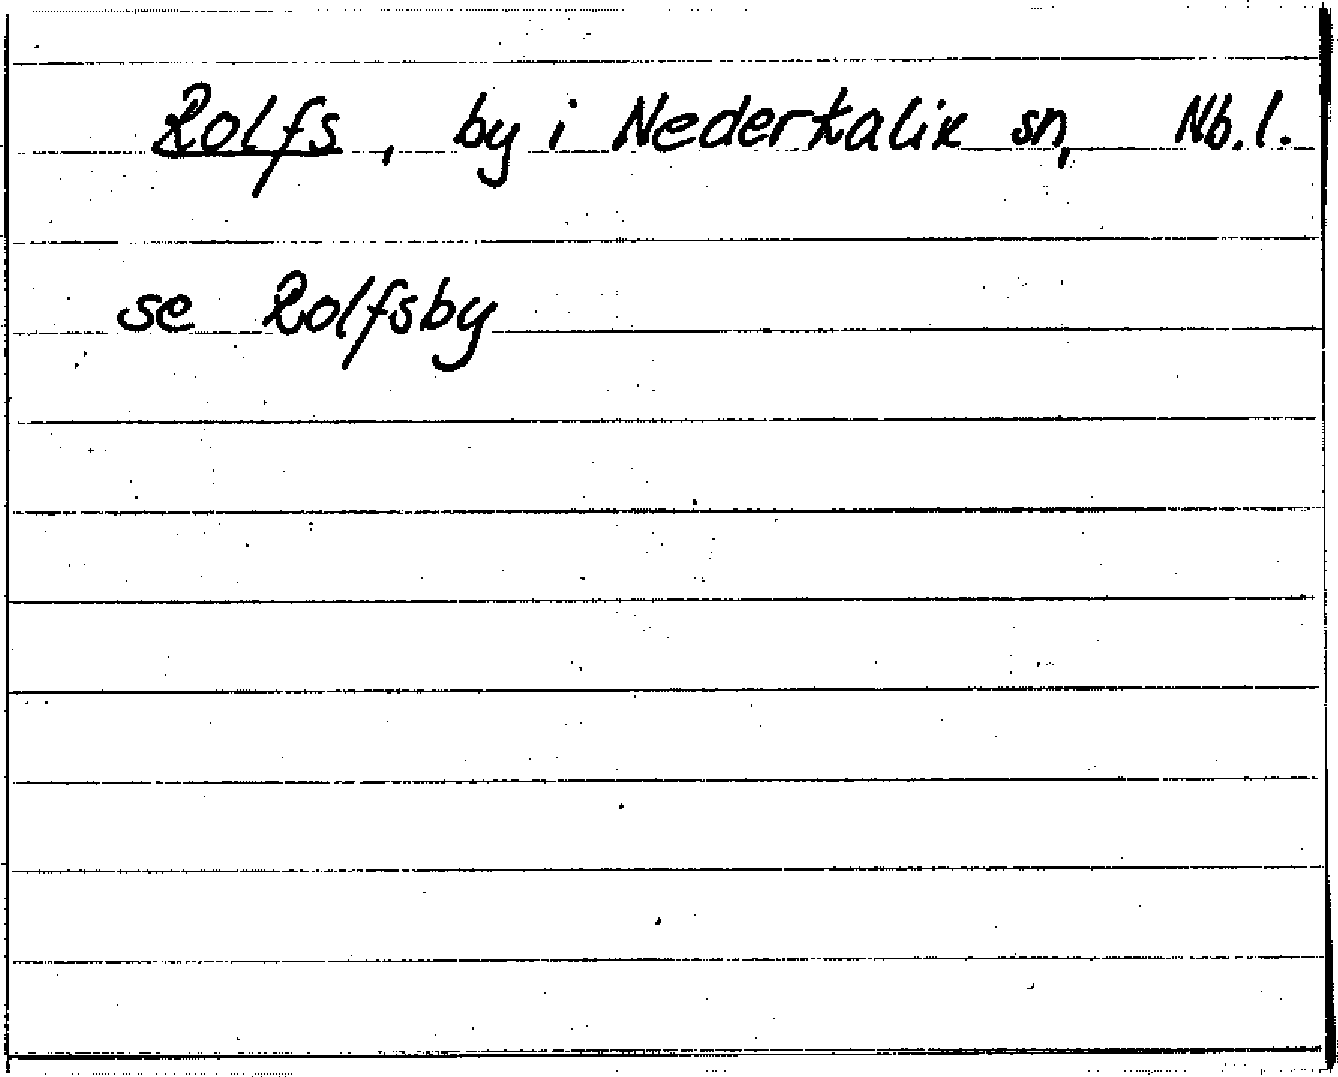 Rolfs, by i Nederkalix sn, Nb.l.
se Rolfsby